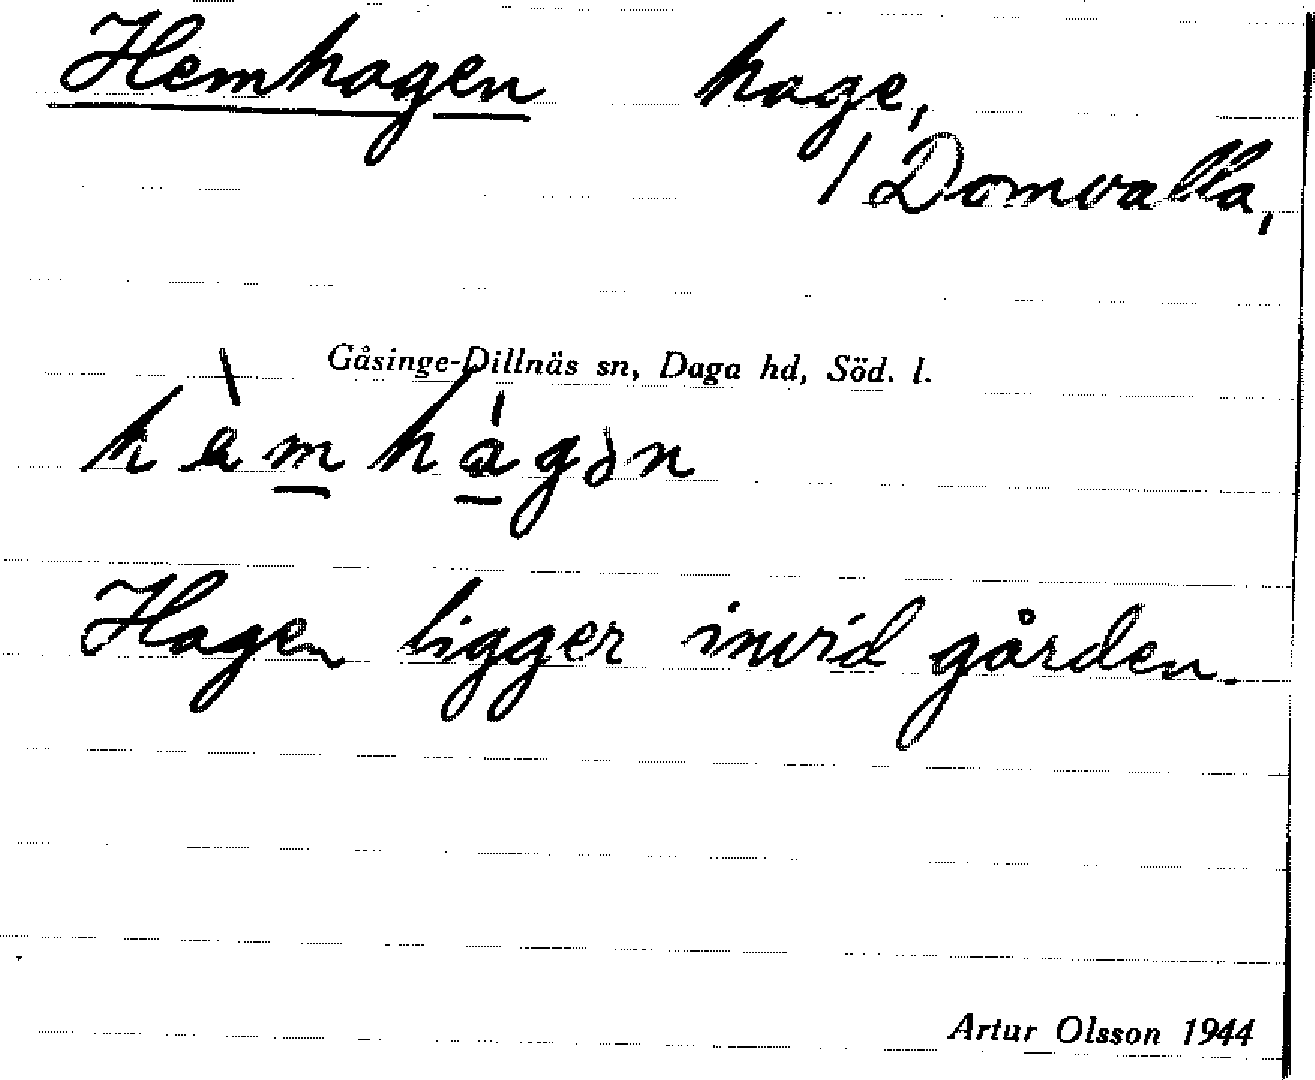 Hemhagen hage,
/ Domvalla,
Gåsinge-Dillnäs sn, Daga hd, Söd. l.
hàmhágən
Hagen ligger invid gården.
Artur Olsson 1944